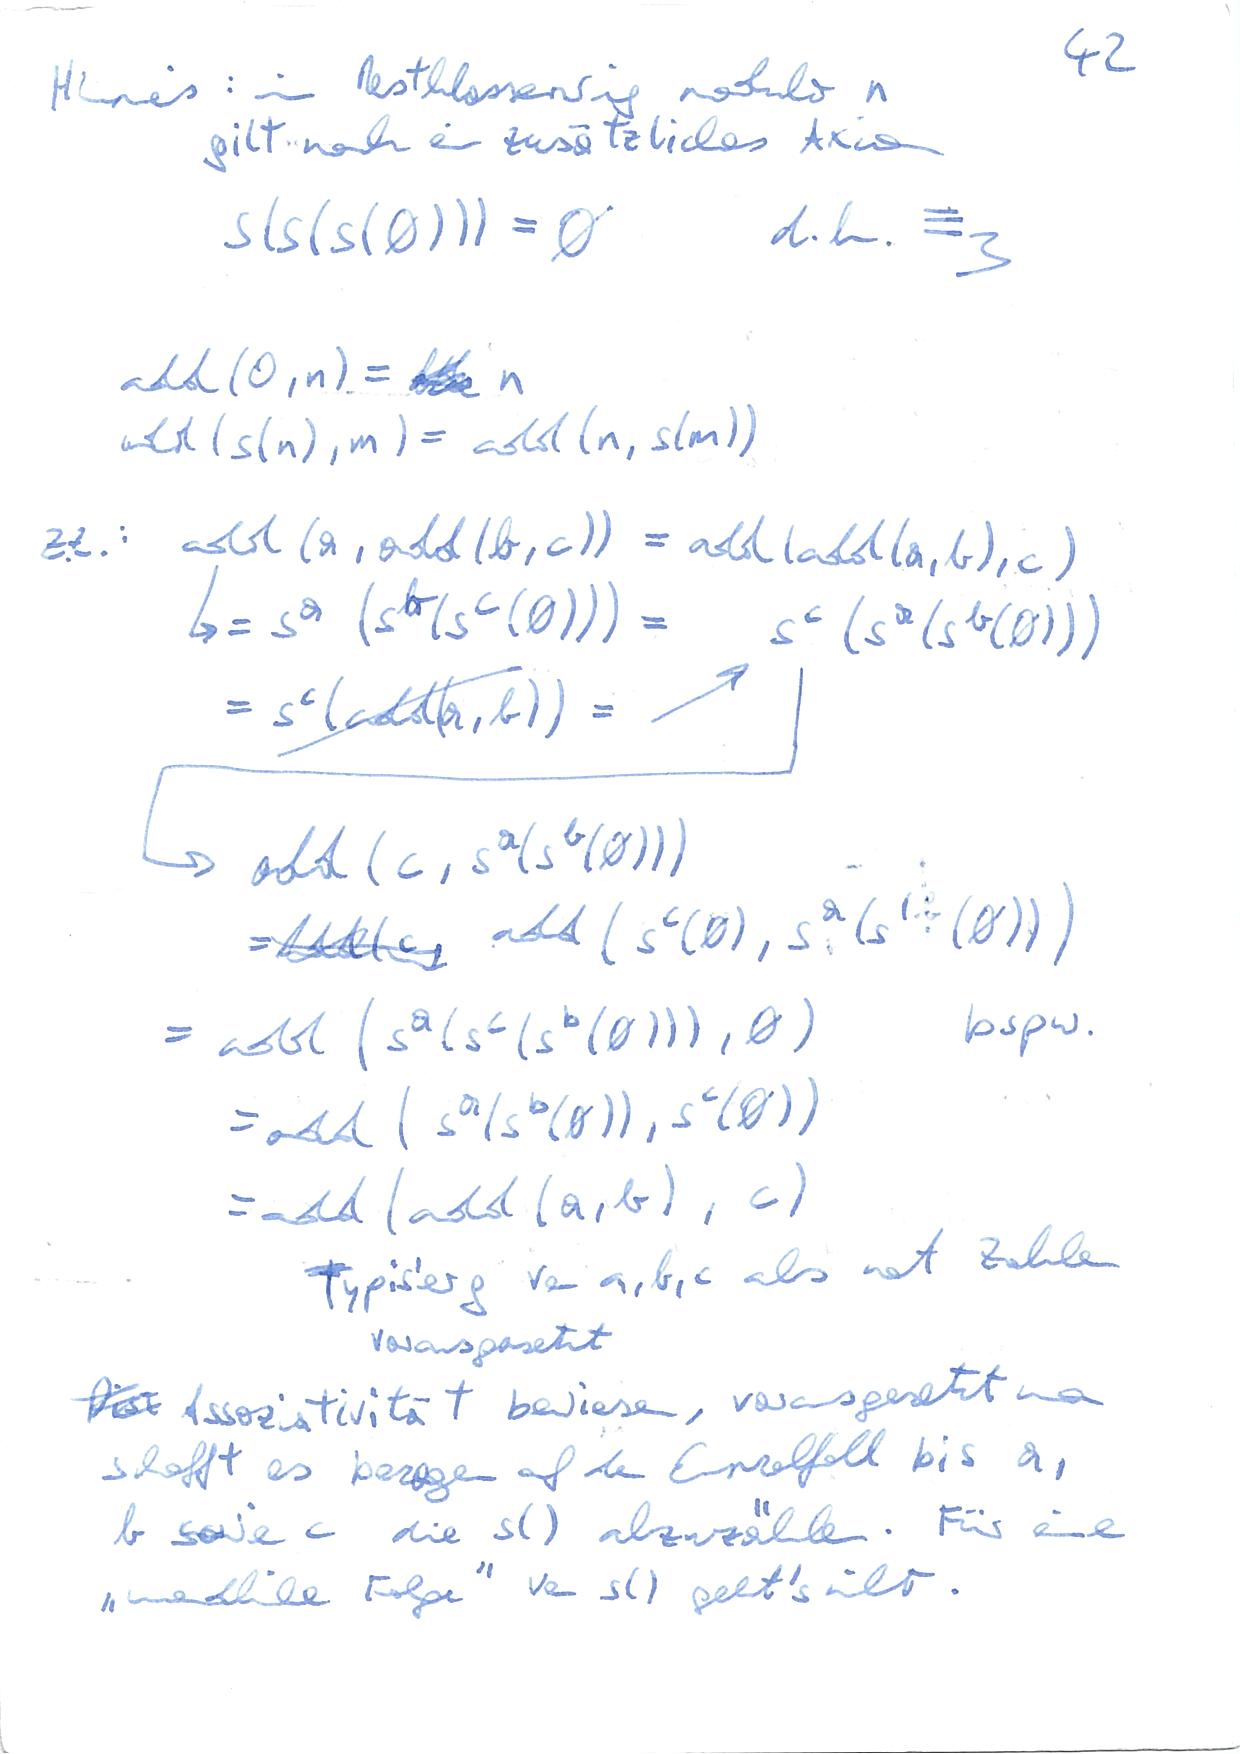 42
Hinweis: in Restklassenring modulo n
gilt noch ein zusätzliches Axiom
s(s(s(0))) = 0 d.h. ≡₃
add(0,n) = n
add(s(n),m) = add(n, s(m))
z.z.: add(a, add(b,c)) = add(add(a,b),c)
↳ = sᵃ(sᵇ(sᶜ(0))) = sᶜ(sᵃ(sᵇ(0)))
= sᶜ(add(a,b)) =
→ add(c, sᵃ(sᵇ(0)))
= add(sᶜ(0), sᵃ(sᵇ(0)))
= add(sᵃ(sᶜ(sᵇ(0))), 0) bspw.
= add(sᵃ(sᵇ(0)), sᶜ(0))
= add(add(a,b), c)
Typisierg von a,b,c als nat Zahlen
vorausgesetzt
Assoziativität bewiesen, vorausgesetzt man
schafft es bezogen auf den Einzelfall bis a,
b sowie c die s() abzuzählen. Für eine
„unendliche Folge" von s() geht's nicht.